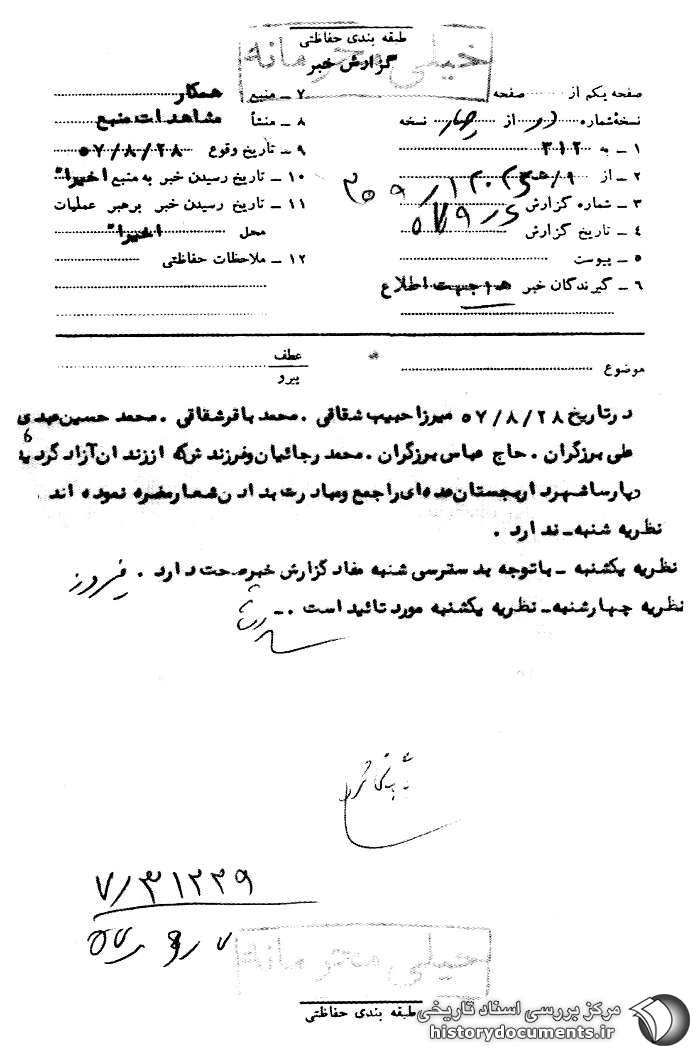 طبقه بندی حفاظتی
خیلی محرمانه
گزارش خبر
صفحه یکم از صفحه
نسخهٔ شماره دو از چهار نسخه
۱ ـ به ۳۱۲
۲ ـ از
۳ ـ شماره گزارش
۴ ـ تاریخ گزارش
۵ ـ پیوست
۶ ـ گیرندگان خبر جهت اطلاع
۷ ـ منبع همکار
۸ ـ منشأ مشاهدات منبع
۹ ـ تاریخ وقوع ۵۷/۸/۲۸
۱۰ ـ تاریخ رسیدن خبر به منبع اخیراً
۱۱ ـ تاریخ رسیدن خبر برهبر عملیات
محل اخیراً
۱۲ ـ ملاحظات حفاظتی
موضوع
عطف
پیرو
در تاریخ ۵۷/۸/۲۸ میرزا حبیب شقاقی . محمد باقر شقاقی . محمد حسین عبدی
علی برزگران . حاج عباس برزگران . محمد رجائیان و فرزندش که از زندان آزاد گردیده
و پارسا شهردار بجستان عده‌ای را جمع و مبادرت بدادن شعار مضره نموده اند
نظریه شنبه ـ ندارد .
نظریه یکشنبه ـ باتوجه بدسترسی شنبه مفاد گزارش خبر صحت دارد . فیروز
نظریه چهارشنبه ـ نظریه یکشنبه مورد تائید است . ـ
۷/۳۱۲۲۹
۵۷/۹/۷
خیلی محرمانه
طبقه بندی حفاظتی
مرکز بررسی اسناد تاریخی
historydocuments.ir